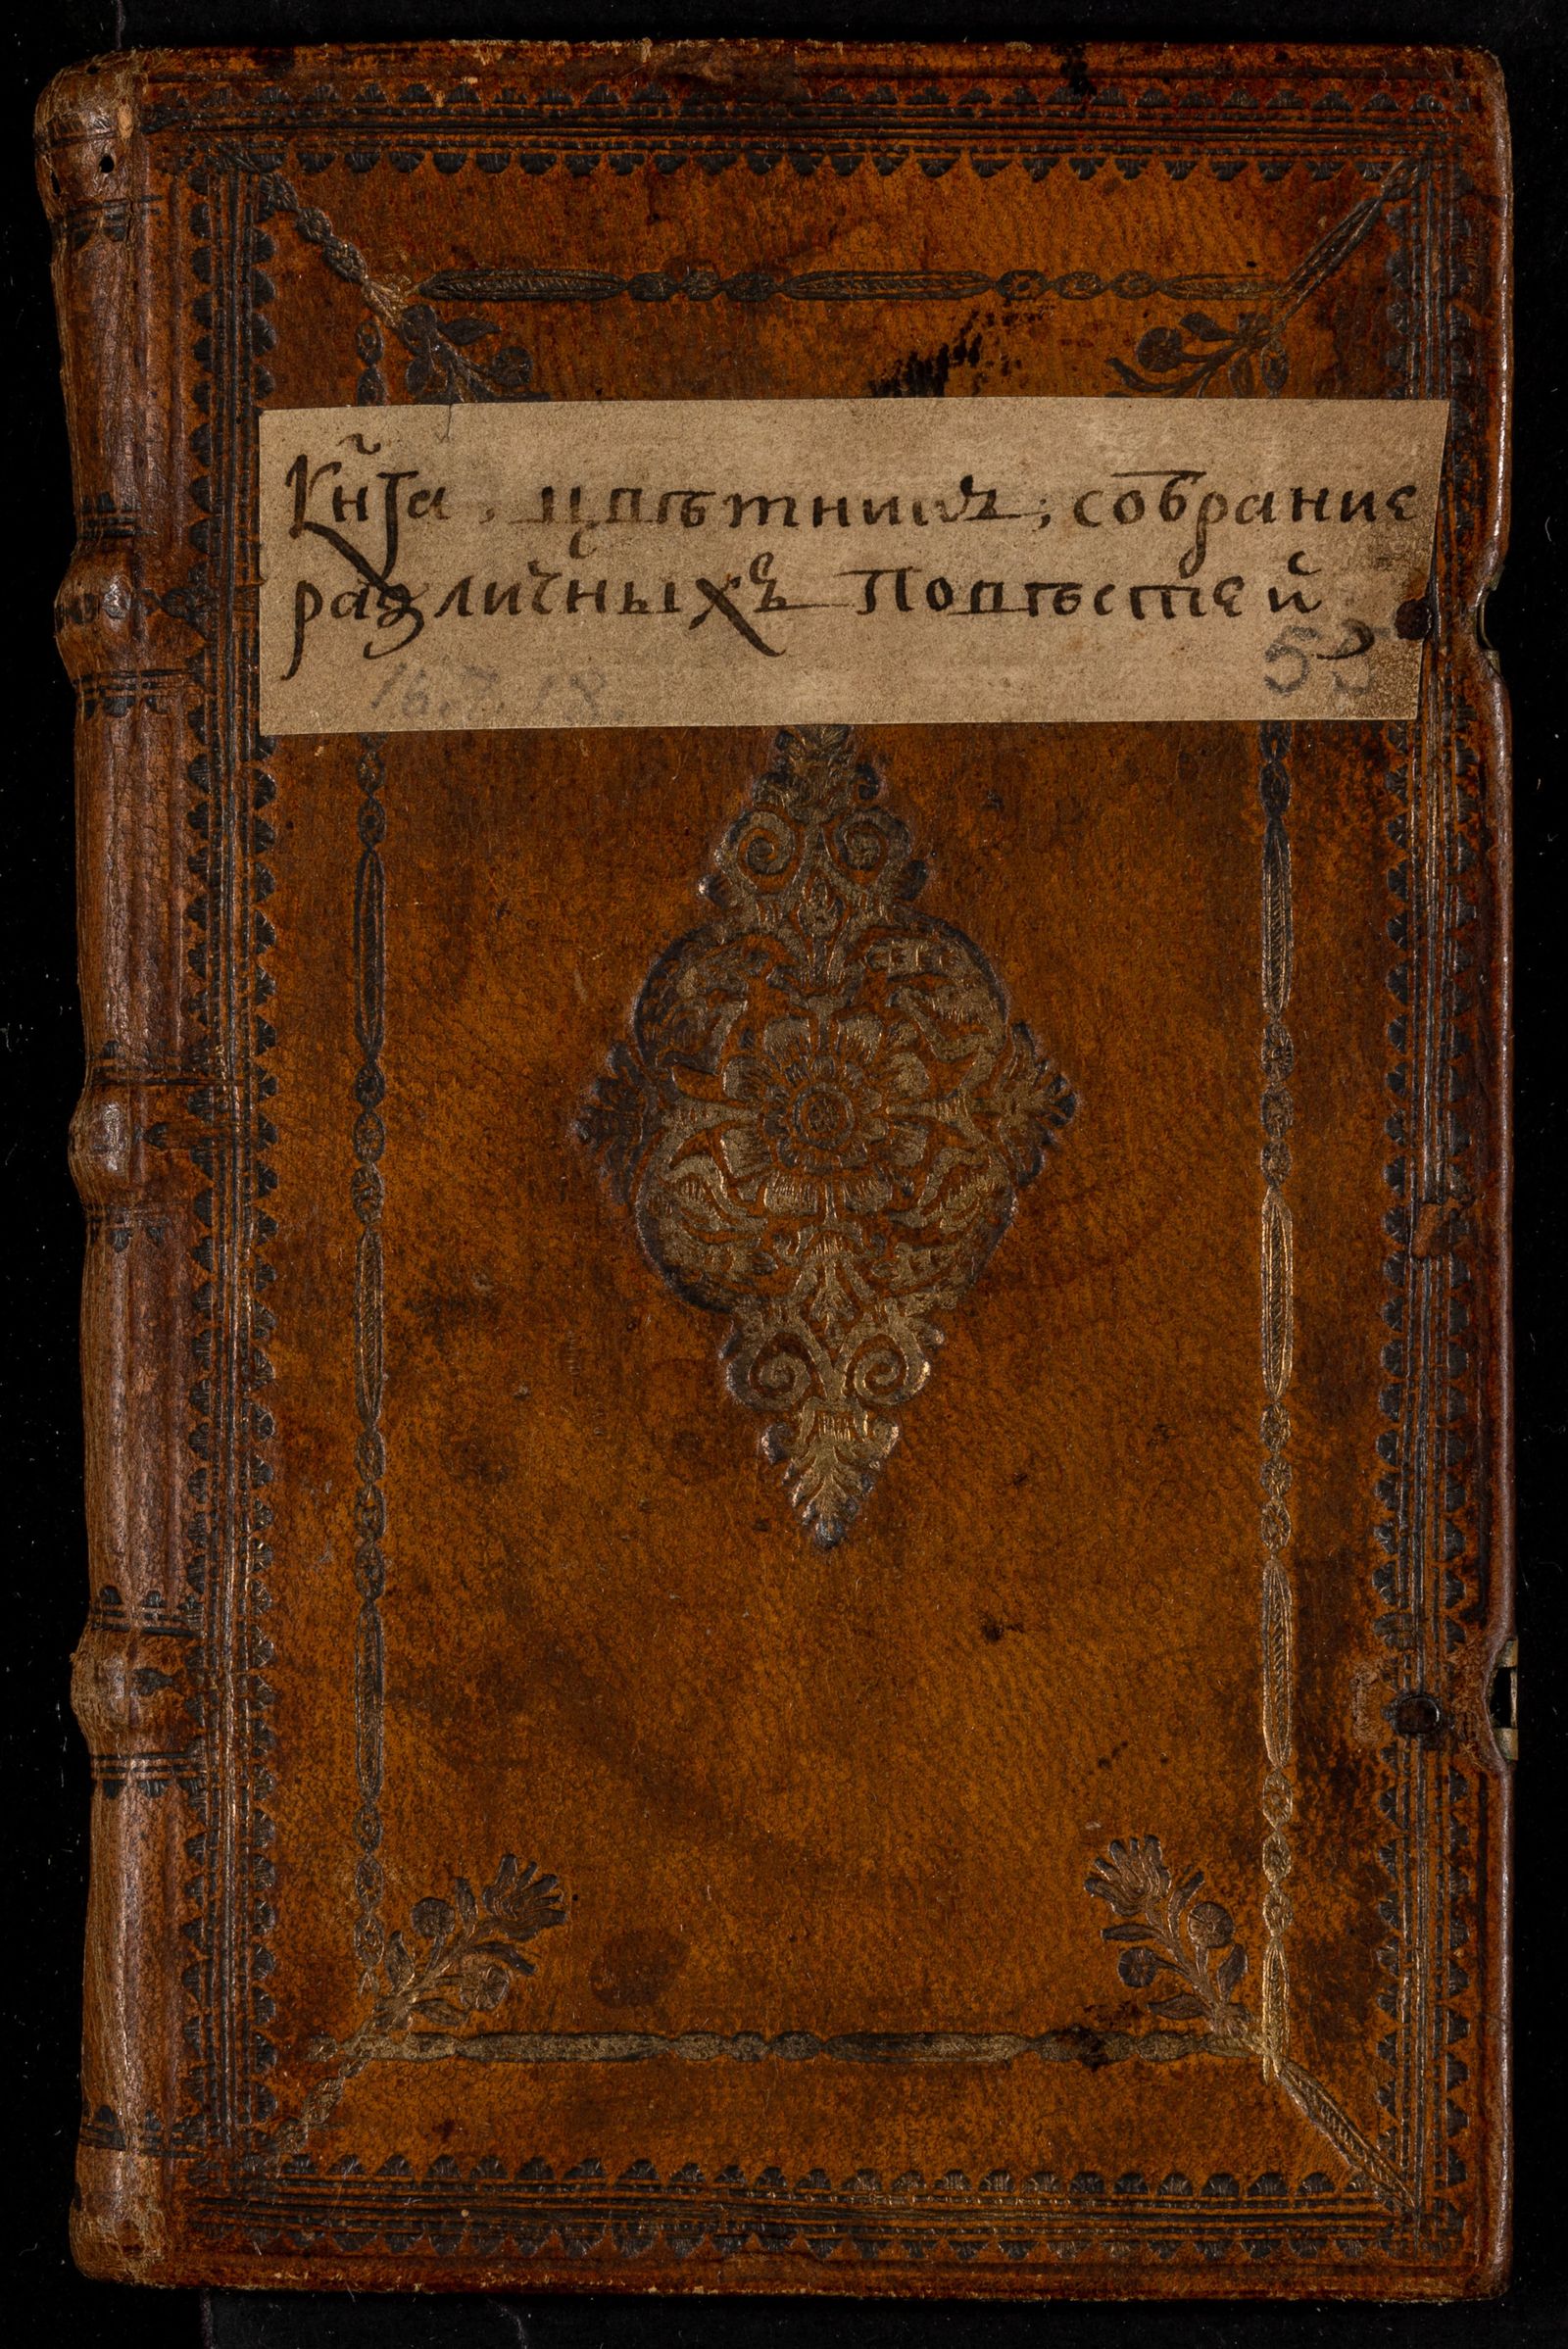 Кн҃га, цвѣтникъ; собрание
различныхъ Повѣстей
16.7.18.